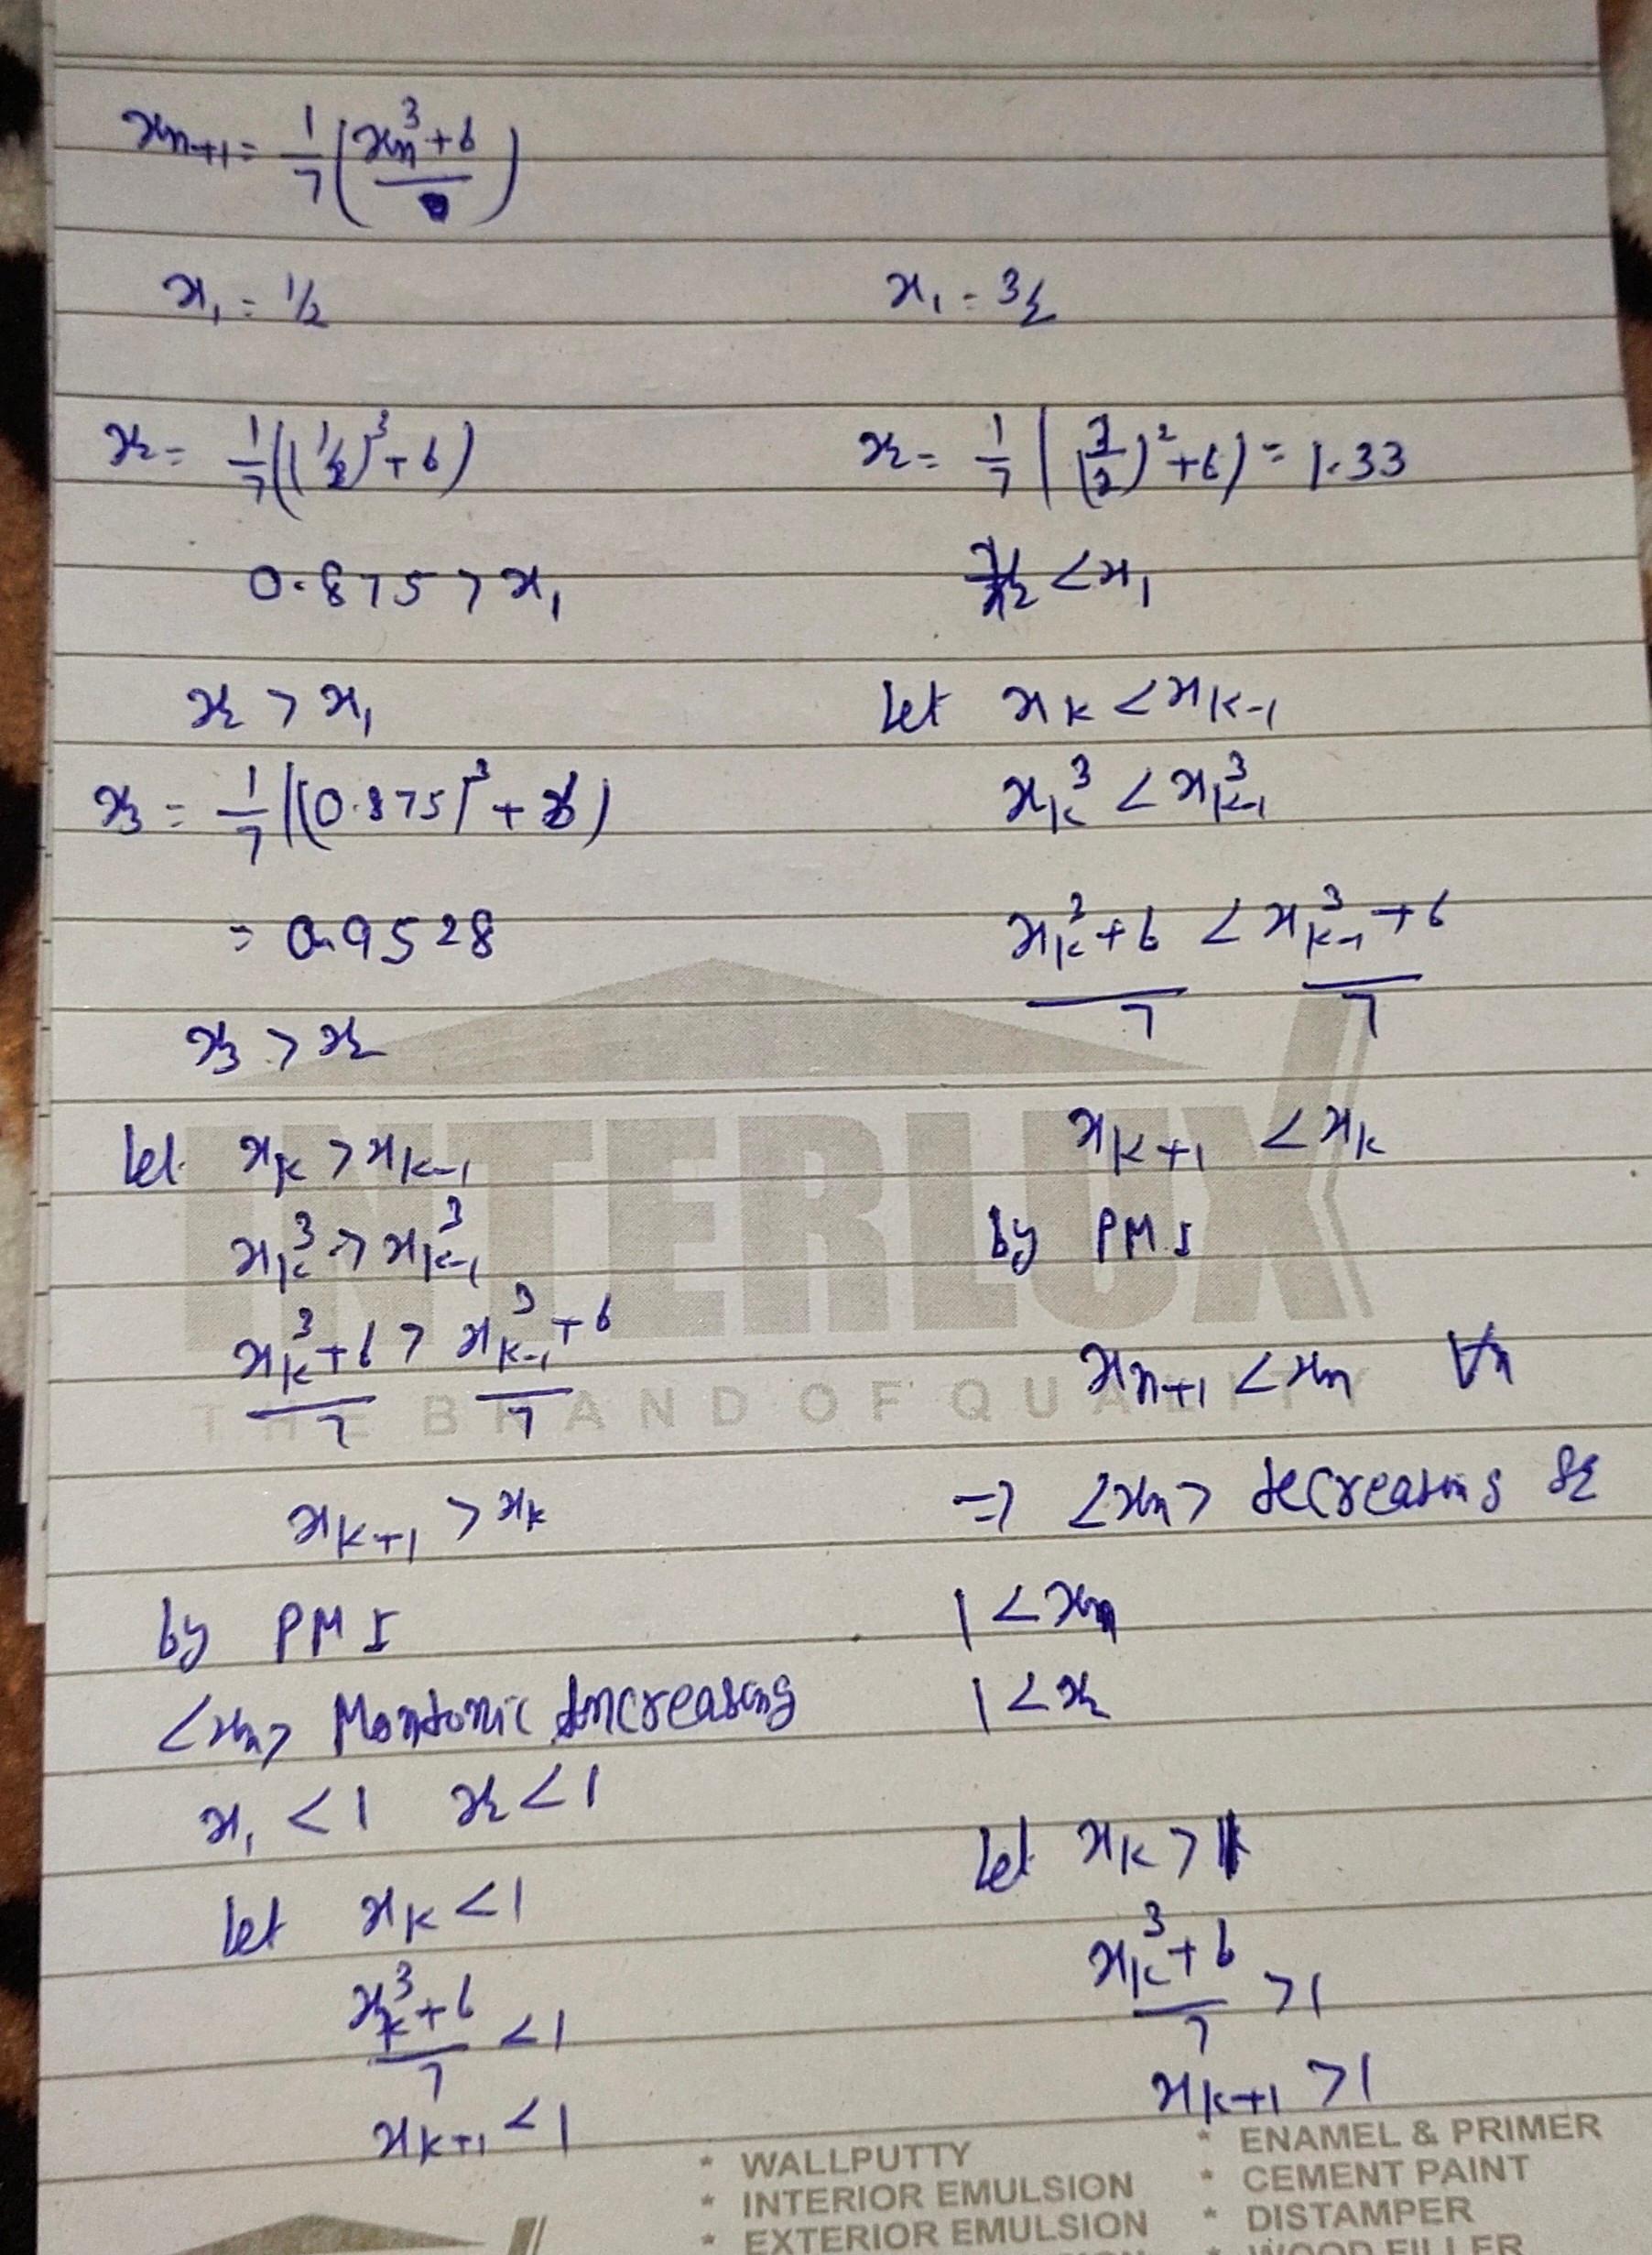 xn+1 = 1/7 (xn³+6 / )
x₁ = 1/2
x₂ = 1/7((1/2)³+6)
0.875 > x₁
x₂ > x₁
x₃ = 1/7((0.875)³+6)
= 0.9528
x₃ > x₂
let xk > xk-1
xk³ > x³k-1
xk³+6/7 > x³k-1+6/7
xk+1 > xk
by PMI
<xn> Montonic Increasing
x₁ < 1 x₂ < 1
let xk < 1
xk³+6/7 < 1
xk+1 < 1
x₁ = 3/2
x₂ = 1/7((3/2)²+6) = 1.33
x₂ < x₁
let xk < xk-1
xk³ < x³k-1
xk³+6/7 < x³k-1+6/7
xk+1 < xk
by PMI
xn+1 < xn ∀n
⇒ <xn> decreasing
1 < xn
1 < x₂
let xk > 1
xk³+6/7 > 1
xk+1 > 1
INTERLUX
THE BRAND OF QUALITY
* WALLPUTTY
* INTERIOR EMULSION
* EXTERIOR EMULSION
* ENAMEL & PRIMER
* CEMENT PAINT
* DISTAMPER
* WOOD FILLER